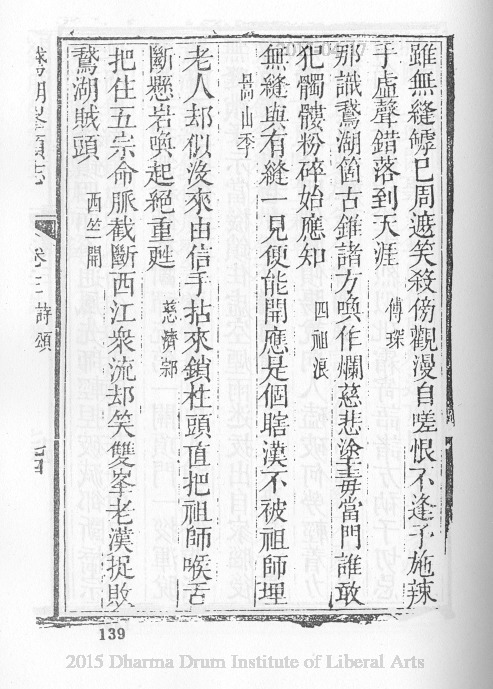 雖無縫罅已周遮笑殺傍觀漫自嗟恨不逢予施辣
手虛聲錯落到天涯 傅琛
那識鵞湖箇古錐諸方喚作爛慈悲塗毒當門誰敢
犯髑髏粉碎始應知 四祖浪
無縫與有縫一見便能開應是個瞎漢不被祖師埋
嵩山季
老人却似沒來由信手拈來鎖杜頭直把祖師喉舌
斷懸岩喚起絕重甦 慈濟
把住五宗命脈截斷西江衆流却笑雙峯老漢捉敗
鵞湖賊頭 西竺開
湖峯頂志 卷三 詩頌
139
2015 Dharma Drum Institute of Liberal Arts